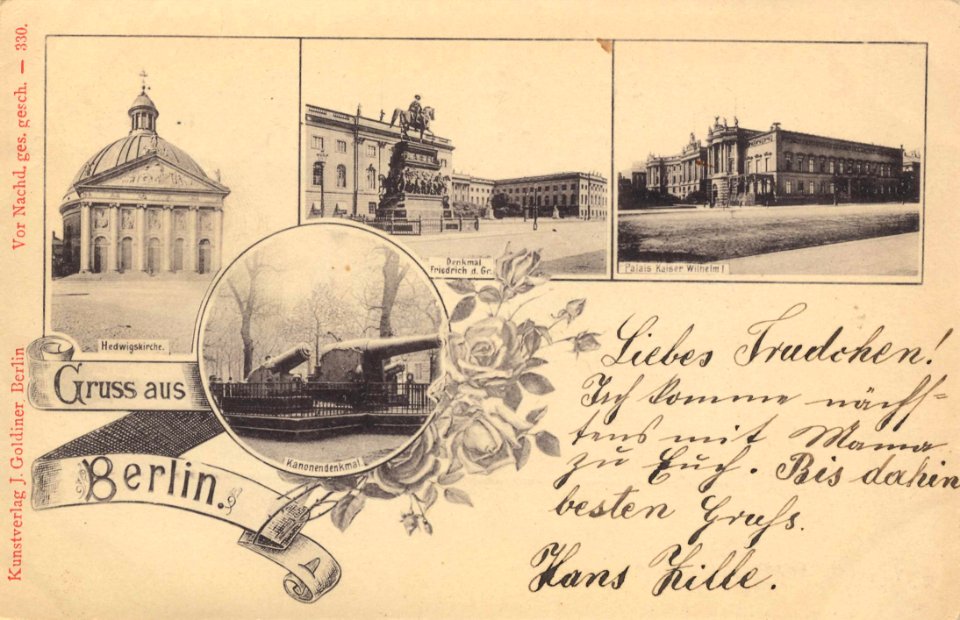 Kunstverlag J. Goldiner, Berlin Vor Nachd. ges. gesch. — 330.
Hedwigskirche.
Denkmal
Friedrich d. Gr.
Palais Kaiser Wilhelm I
Kanonendenkmal
Gruss aus
Berlin.
A
Liebes Trudchen!
Ich komme nächs=
tens mit Mama
zu Euch. Bis dahin
besten Gruss.
Hans Hille.